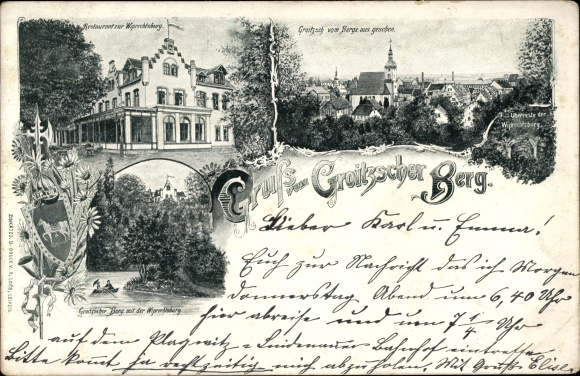 Restaurant zur Wiprechtsburg.
Groitzsch vom Berge aus gesehen.
Überreste der
Wiprechtsburg.
Gruß vom Groitzscher Berg.
Groitzscher Berg mit der Wiprechtsburg.
Lieber Karl u. Emma!
Euch zur Nachricht das ich Morgen
Donnerstag Abend um 6,40 Uhr
hier abreise und um 7 1/4 Uhr
auf dem Plagwitz = Lindenauer = Bahnhof eintreffe
Bitte kommt ja rechtzeitig mich abzuholen. Mit Gruß Elise